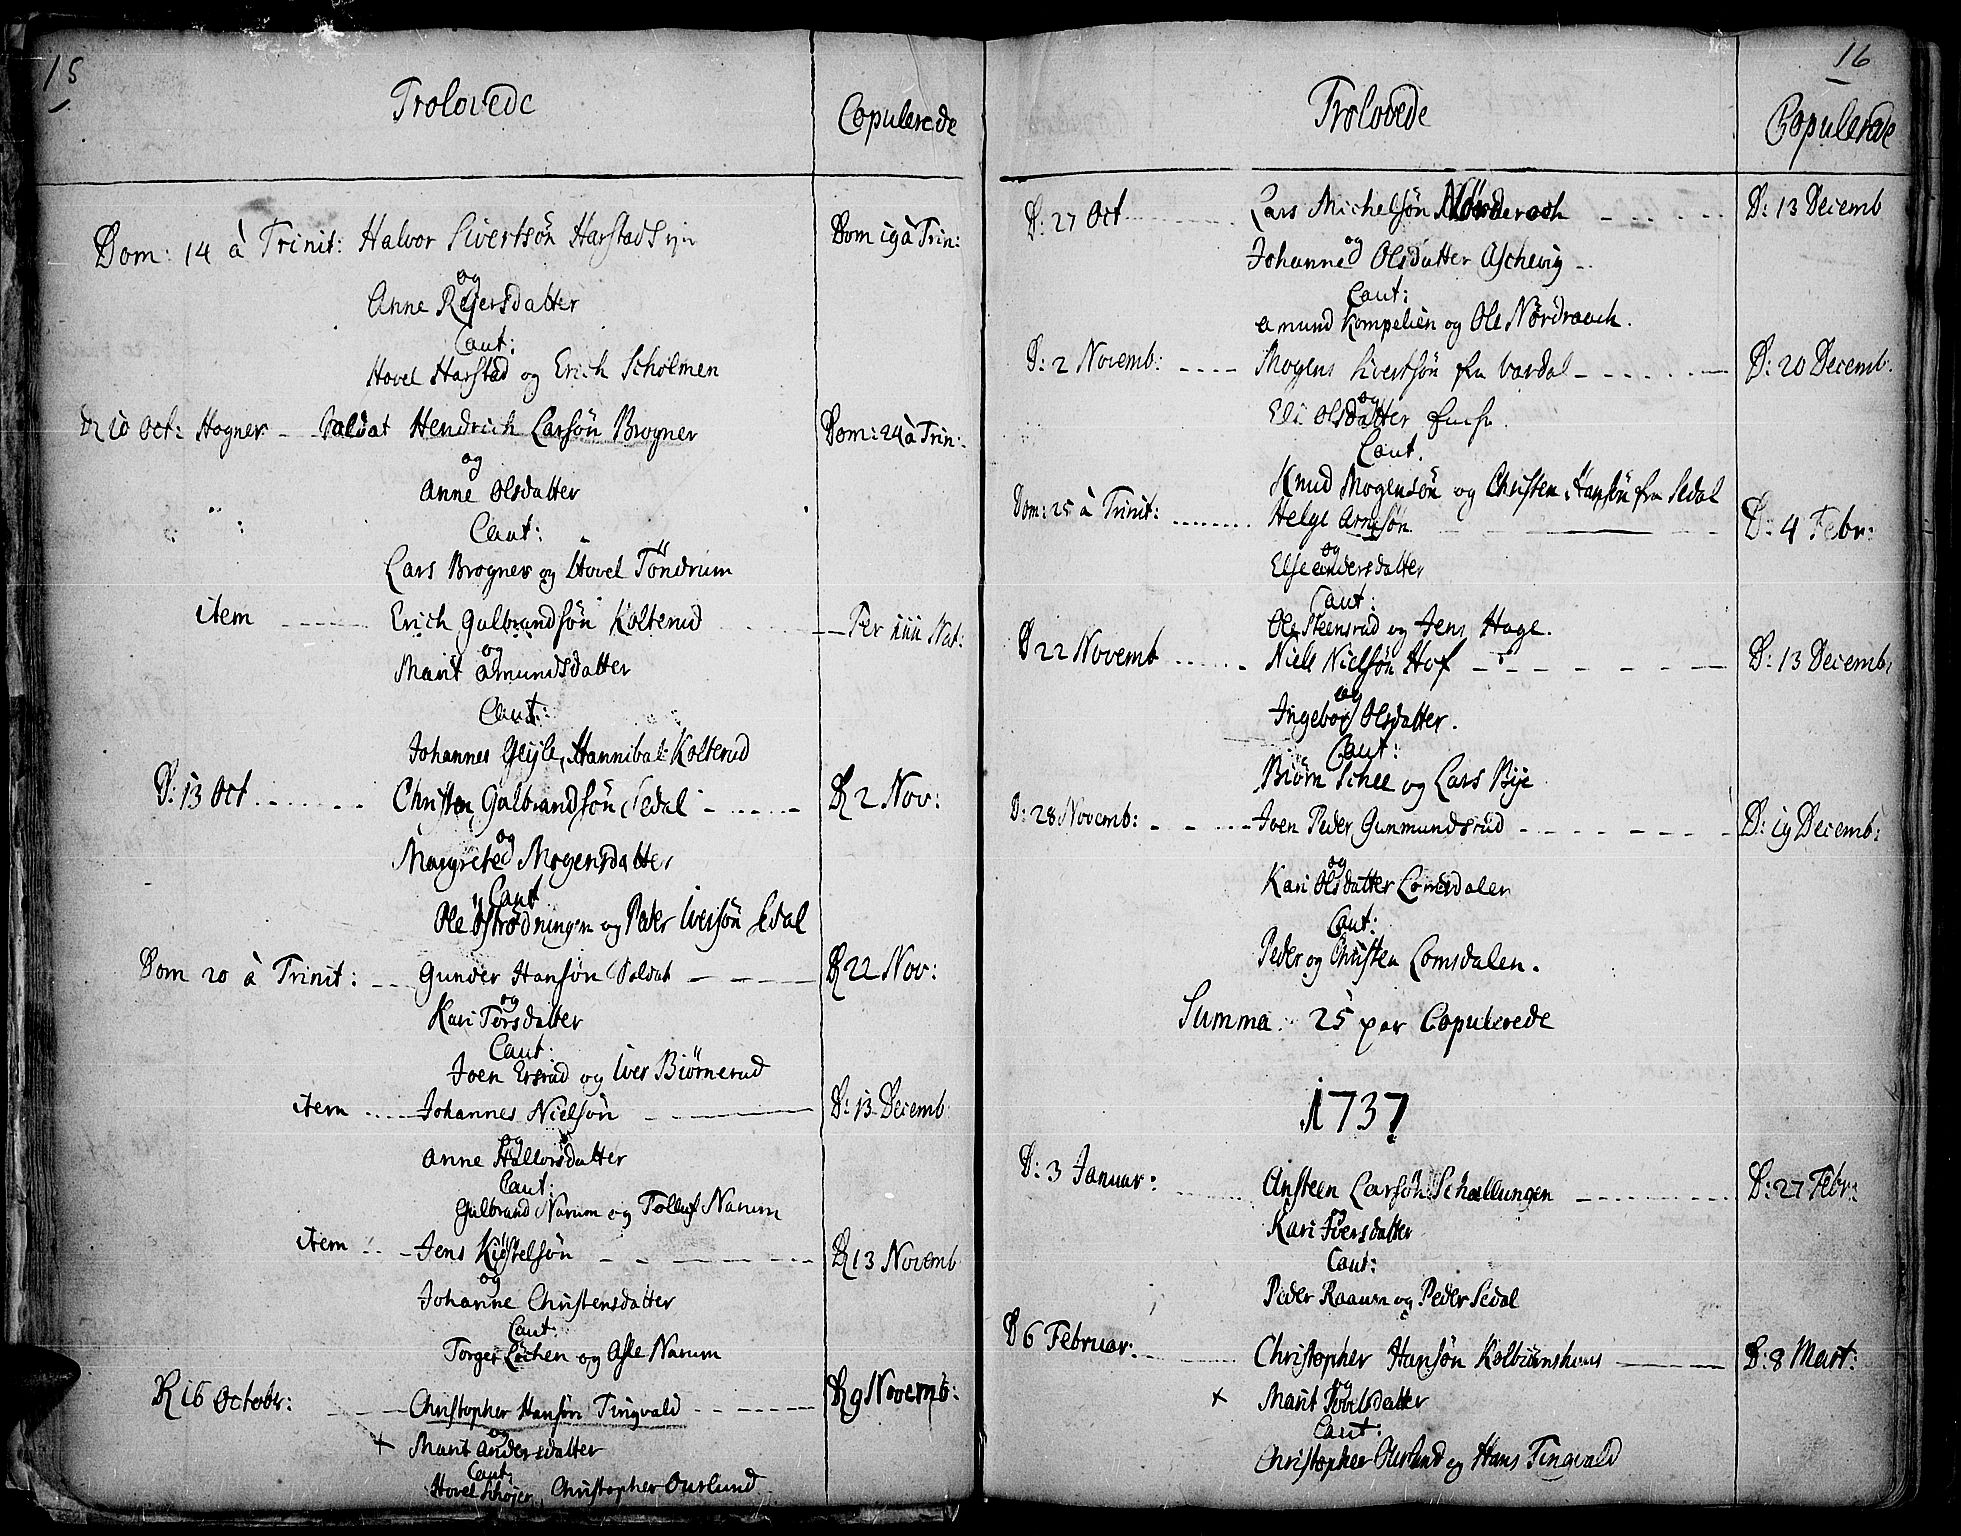 15
Trolovede
Copulerede
Dom: 14 à Trinit: Halvor Sivertsön Harstad Dom 19 à Trin:
og
Anne Rejersdatter
Caut:
Hovel Harstad og Erich Scholmen
D 10 Oct: Hogner Soldat Hendrich Larsön Brogner Dom: 24 à Trin:
og
Anne Olsdatter
Caut:
Lars Brogner og Hovel Töndrum
item Erich Gulbrandsön Kolterud Fer iii Nat:
og
Marit Amundsdatter
Caut:
Johannes Gejle, Hannibal Kolterud
D: 13 Oct Christen Gulbrandsön Sedal D 2 Nov:
og
Margrete Mogensdatter
Caut
Ole Öströdningen og Peder Iversön Sedal
Dom 20 à Trinit: Gunder Hansön Soldat D 22 Nov:
og
Kari Torsdatter
Caut:
Joen Ersrud og Iver Biörnerud
item Johannes Nielsön D: 13 Decemb
og
Anne Hallvorsdatter
Caut:
Gulbrand Narum og Tollef Narum
item Jens Kiöstelsön D 13 Novemb
og
Johanne Christensdatter
Caut:
Torger Löchen og Asle Narum
D 16 October: Christopher Hansön Tingvald D 9 Novemb:
og
+ Marit Andersdatter
Caut:
Hovel Schöjen, Christopher Ourlund
16
Trolovede
Copulerede
D: 27 Oct Lars Michelsön Nörderach D: 13 Decemb
og
Johanne Olsdatter Aschevig
Caut:
Amund Kompelien og Ole Nordraach.
D: 2 Novemb: Mogens Sivertsön fra Vardal D: 20 Decemb:
og
Eli Olsdatter
Caut.
Knud Mogensön og Christen Hansön fra Sedal
Dom: 25 à Trinit: Helge Arnesön D: 4 Febr:
og
Else Andersdatter
Caut:
Ole Steensrud og Jens Hage.
D 22 Novemb Niels Nielsön Hof D: 13 Decemb:
og
Ingebor Olsdatter.
Caut:
Biörn Schee og Lars Bye
D: 28 Novemb: Joen Peder Gunmundsrud D: 19 Decemb:
og
Kari Olsdatter Lomsdalen
Caut:
Peder og Christen Lomsdalen.
Summa: 25 par Copulerede
1737
D: 3 Januar: Ansteen Larsön Schallungen D: 27 Febr:
og
Kari Iversdatter
Caut:
Peder Raaum og Peder Sedal
D 6 Februar: Christopher Hansön Kolbiörnshuus D: 8 Mart:
og
+ Marit Povelsdatter
Caut:
Christopher Ourlund og Hans Tingvald